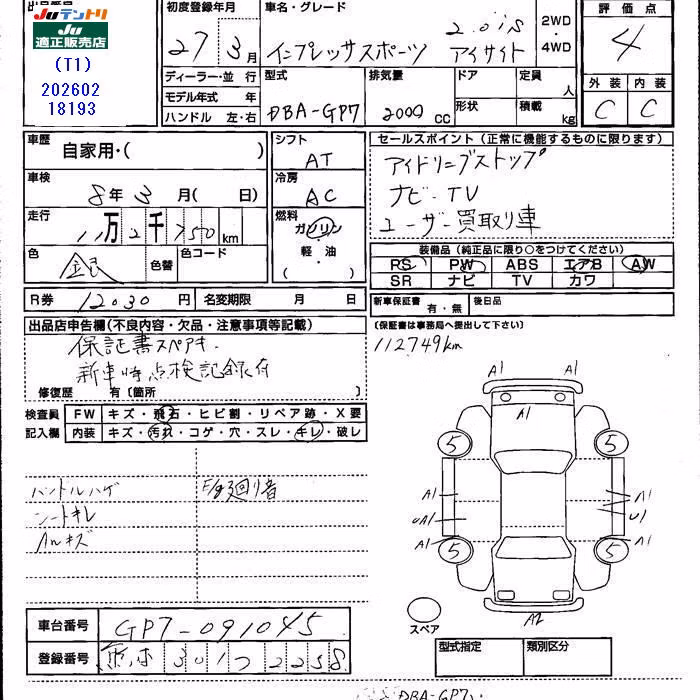 出品番号
JUテントリ
適正販売店
(T1)
202602
18193
初度登録年月
27 3月
車名・グレード
2.0i-S
インプレッサスポーツ アイサイト
2WD
・
4WD
評価点
4
外装 内装
C C
ディーラー・並行
モデル年式 年
ハンドル 左・右
型式
DBA-GP7
排気量
2000 CC
ドア
形状
定員
人
積載
kg
車歴
自家用・( )
車検
8年 3月( 日)
走行
11万2千750km
色
銀
色替
色コード
R券 12030円
名変期限 月 日
シフト
AT
冷房
AC
燃料
ガソリン
軽・油
( )
セールスポイント(正常に機能するものに限ります)
アイドリングストップ
ナビ・TV
ユーザー買取り車
装備品(純正品に限り○をつけてください)
RS PW ABS エアB AW
SR ナビ TV カワ
新車保証書 有・無
後日品
(保証書は事務局へ提出して下さい)
112749km
出品店申告欄(不良内容・欠品・注意事項等記載)
保証書スペアキー
新車時点検記録有
修復歴 有〔箇所 〕
検査員
記入欄
FW キズ・飛石・ヒビ割・リペア跡・X要
内装 キズ・汚れ・コゲ・穴・スレ・キレ・破レ
ハンドルハゲ
シートキレ
AWキズ
E/g廻り音
A1 A1
A1
5 5
A1 A1
UA1 U1
A1 A1
5 5
A2
スペア
車台番号 GP7-091045
登録番号 301 2258
型式指定 類別区分
DBA-GP7